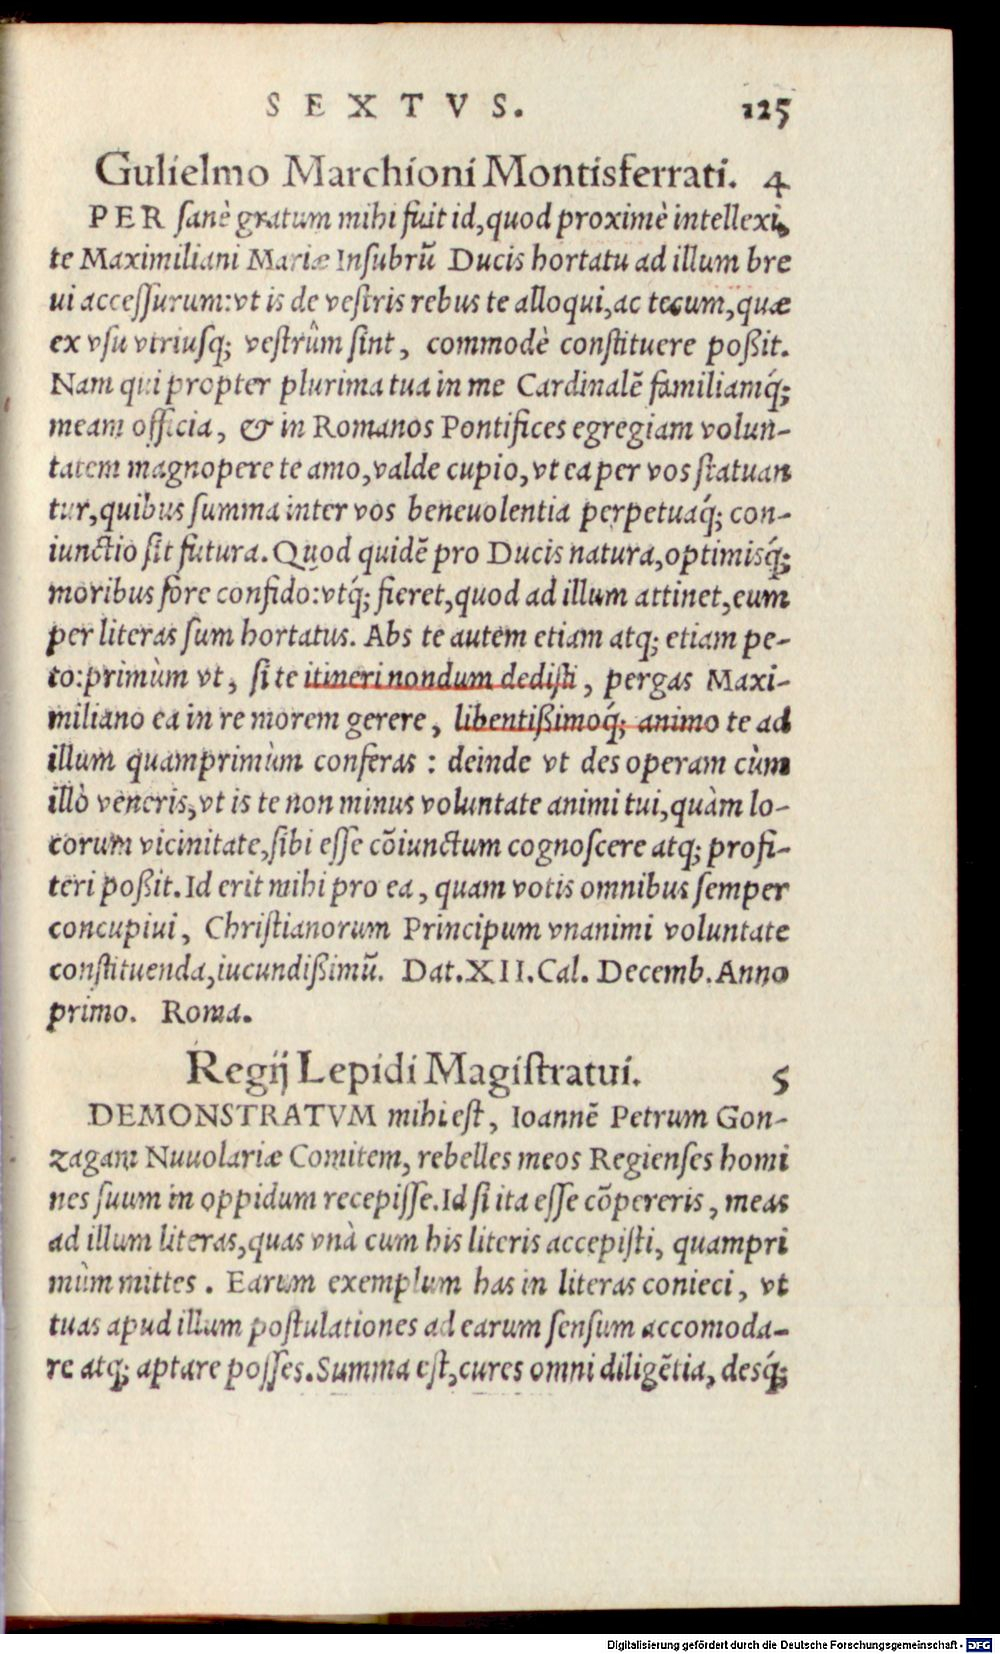 SEXTVS. 125
Gulielmo Marchioni Montisferrati. 4
PER sanè gratum mihi fuit id, quod proximè intellexi,
te Maximiliani Mariæ Insubrū Ducis hortatu ad illum bre
ui accessurum: vt is de vestris rebus te alloqui, ac tecum, quæ
ex vsu vtriusq; vestrûm sint, commodè constituere poßit.
Nam qui propter plurima tua in me Cardinalē familiamq́;
meam officia, & in Romanos Pontifices egregiam volun-
tatem magnopere te amo, valde cupio, vt ea per vos statuan
tur, quibus summa inter vos beneuolentia perpetuaq́; con-
iunctio sit futura. Quod quidē pro Ducis natura, optimisq́;
moribus fore confido: vtq́; fieret, quod ad illum attinet, eum
per literas sum hortatus. Abs te autem etiam atq; etiam pe-
to: primùm vt, si te itineri nondum dedisti, pergas Maxi-
miliano ea in re morem gerere, libentißimoq́; animo te ad
illum quamprimùm conferas: deinde vt des operam cùm
illò veneris, vt is te non minus voluntate animi tui, quàm lo-
corum vicinitate, sibi esse cōiunctum cognoscere atq; profi-
teri poßit. Id erit mihi pro ea, quam votis omnibus semper
concupiui, Christianorum Principum vnanimi voluntate
constituenda, iucundißimū. Dat. XII. Cal. Decemb. Anno
primo. Roma.
Regij Lepidi Magistratui. 5
DEMONSTRATVM mihi est, Ioannē Petrum Gon-
zagam Nuuolariæ Comitem, rebelles meos Regienses homi
nes suum in oppidum recepisse. Id si ita esse cōpereris, meas
ad illum literas, quas vnà cum his literis accepisti, quampri
mùm mittes. Earum exemplum has in literas conieci, vt
tuas apud illum postulationes ad earum sensum accomoda-
re atq; aptare posses. Summa est, cures omni diligētia, desq́;
Digitalisierung gefördert durch die Deutsche Forschungsgemeinschaft - DFG